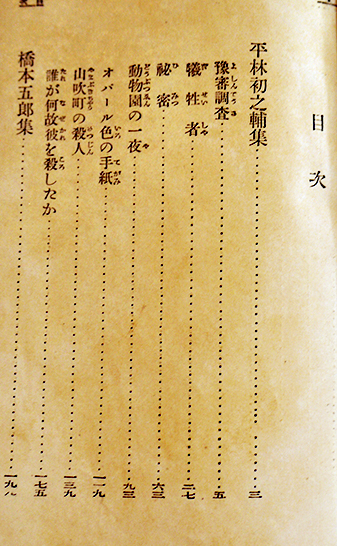 目次
平林初之輔集……三
豫審調査……五
犠牲者……二七
祕密……六三
動物園の一夜……九三
オパール色の手紙……一一九
山吹町の殺人……一三九
誰が何故彼を殺したか……一七五
橋本五郎集……一九八